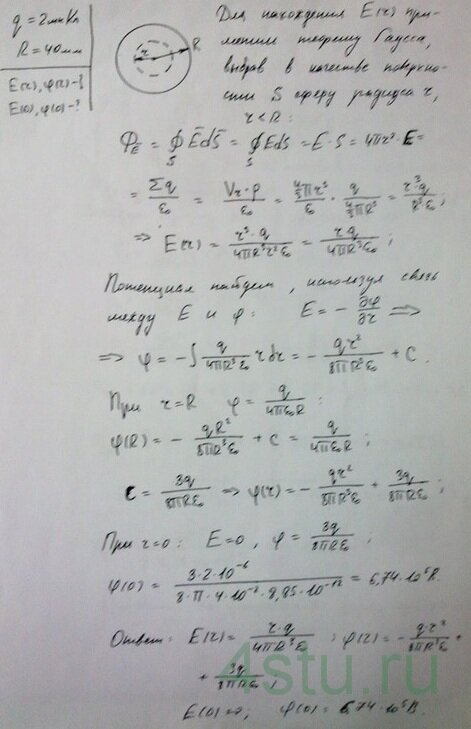 q = 2мкКл
R = 40мм
E(r), φ(r) - ?
E(0), φ(0) - ?
r
R
Для нахождения E(r) при-
меним теорему Гаусса,
выбрав в качестве поверхно-
сти S сферу радиуса r,
r < R:
Φ_E = ∮_S E̅dS̅ = ∮_S EdS = E · S = 4πr² · E =
= Σq/ε₀ = V_r · ρ/ε₀ = (4/3 πr³)/ε₀ · q/(4/3 πR³) = r³q/(R³ε₀);
=> E(r) = r³ · q/(4πR³r²ε₀) = rq/(4πR³ε₀);
Потенциал найдем, используя связь
между E и φ: E = - ∂φ/∂r =>
=> φ = - ∫ q/(4πR³ε₀) r dr = - qr²/(8πR³ε₀) + C.
При r = R φ = q/(4πε₀R) :
φ(R) = - qR²/(8πR³ε₀) + C = q/(4πε₀R);
C = 3q/(8πRε₀) => φ(r) = - qr²/(8πR³ε₀) + 3q/(8πRε₀);
При r = 0: E = 0, φ = 3q/(8πRε₀);
φ(0) = 3 · 2 · 10⁻⁶/(8 · π · 4 · 10⁻² · 8,85 · 10⁻¹²) = 6,74 · 10⁵ В.
Ответ: E(r) = r · q/(4πR³ε₀) ; φ(r) = - q · r²/(8πR³ε₀) +
+ 3q/(8πRε₀);
4stu.ru
E(0) = 0; φ(0) = 6,74 · 10⁵ В.